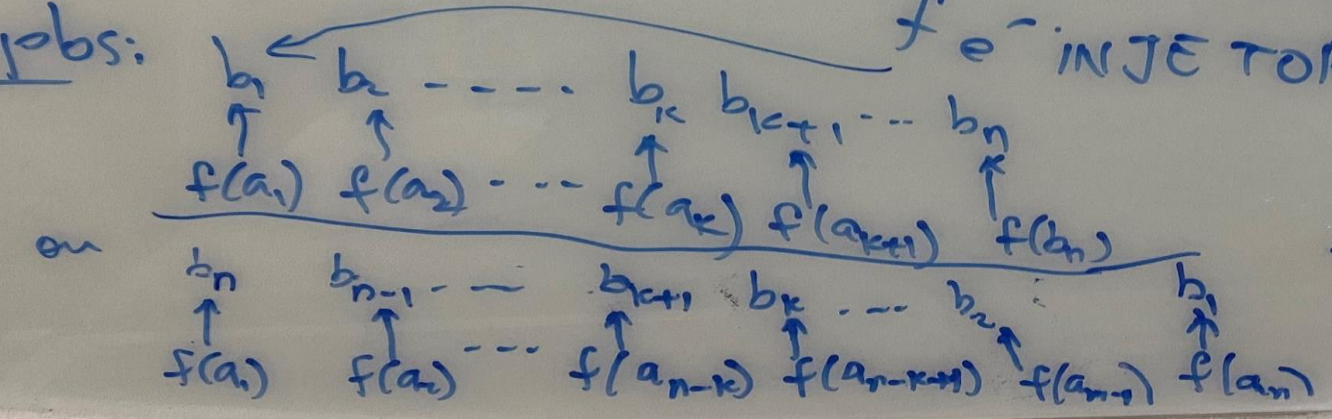 pobs: b₁ b₂ ----- bₖ bₖ₊₁ --- bₙ f é INJETO
f(a₁) f(a₂) ---- f(aₖ) f(aₖ₊₁) f(bₙ)
ou
bₙ bₙ₋₁ --- bₖ₊₁ bₖ ---- b₂ b₁
f(a₁) f(a₂) ---- f(aₙ₋ₖ) f(aₙ₋ₖ₊₁) f(aₙ₋₁) f(aₙ)